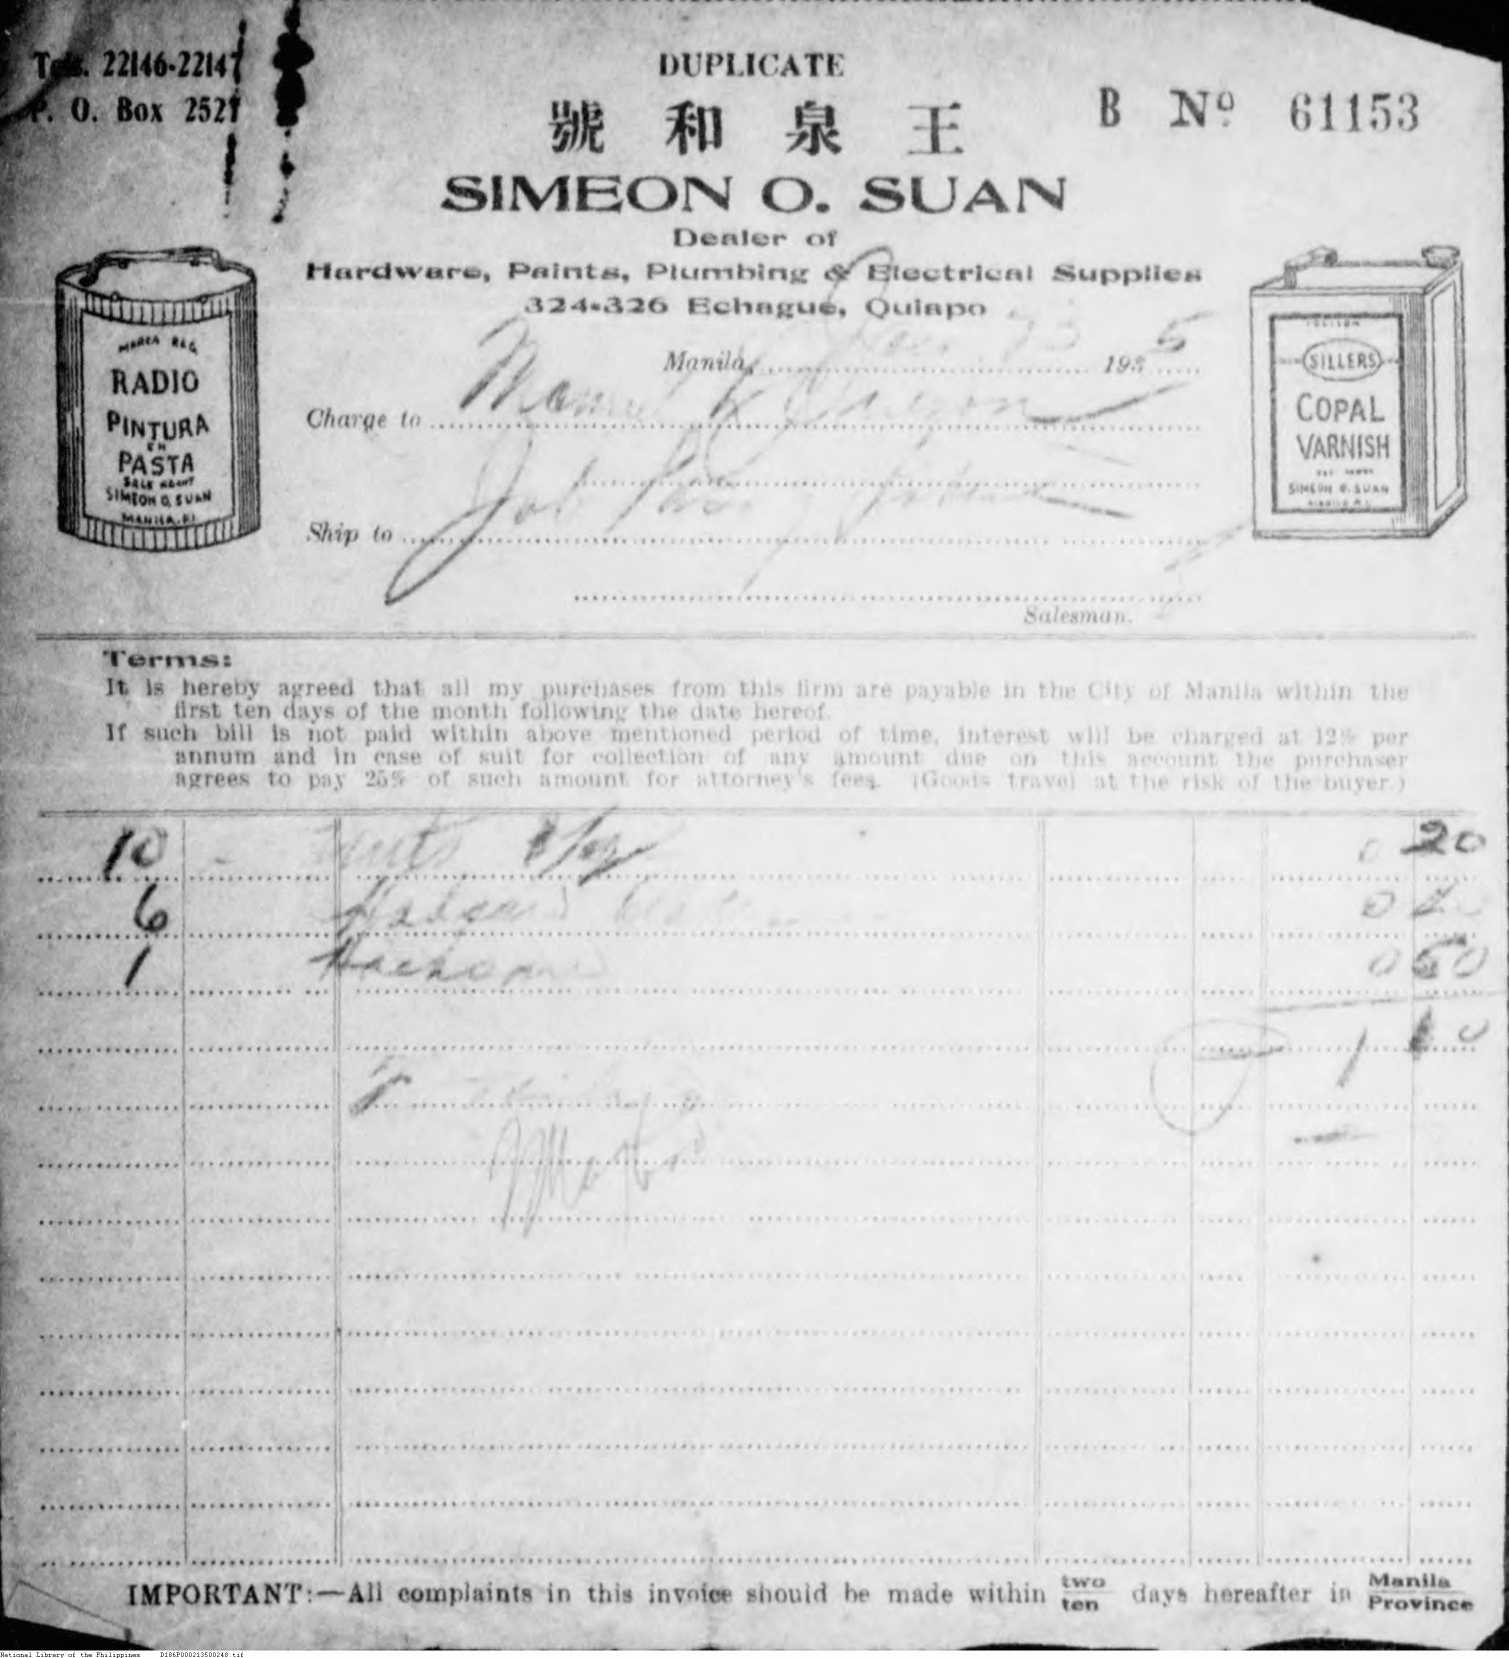 Tels. 22146-22147
P. O. Box 2527
DUPLICATE
B Nº 61153
號 和 泉 王
SIMEON O. SUAN
Dealer of
Hardware, Paints, Plumbing & Electrical Supplies
324-326 Echague, Quiapo
Manila, 1935
Charge to Manuel
Ship to Job
Salesman.
MARCA REG.
RADIO
PINTURA
EN
PASTA
SOLE AGENT
SIMEON O. SUAN
MANILA, P.I.
SILLERS
COPAL
VARNISH
SIMEON O. SUAN
MANILA P.I.
Terms:
It is hereby agreed that all my purchases from this firm are payable in the City of Manila within the
first ten days of the month following the date hereof.
If such bill is not paid within above mentioned period of time, interest will be charged at 12% per
annum and in case of suit for collection of any amount due on this account the purchaser
agrees to pay 25% of such amount for attorney's fees. (Goods travel at the risk of the buyer.)
10 0 20
6 Hacksaw 0
1 Hacksaw 0 50
1 10
IMPORTANT:—All complaints in this invoice should be made within two/ten days hereafter in Manila/Province
National Library of the Philippines D186P000213500248.tif